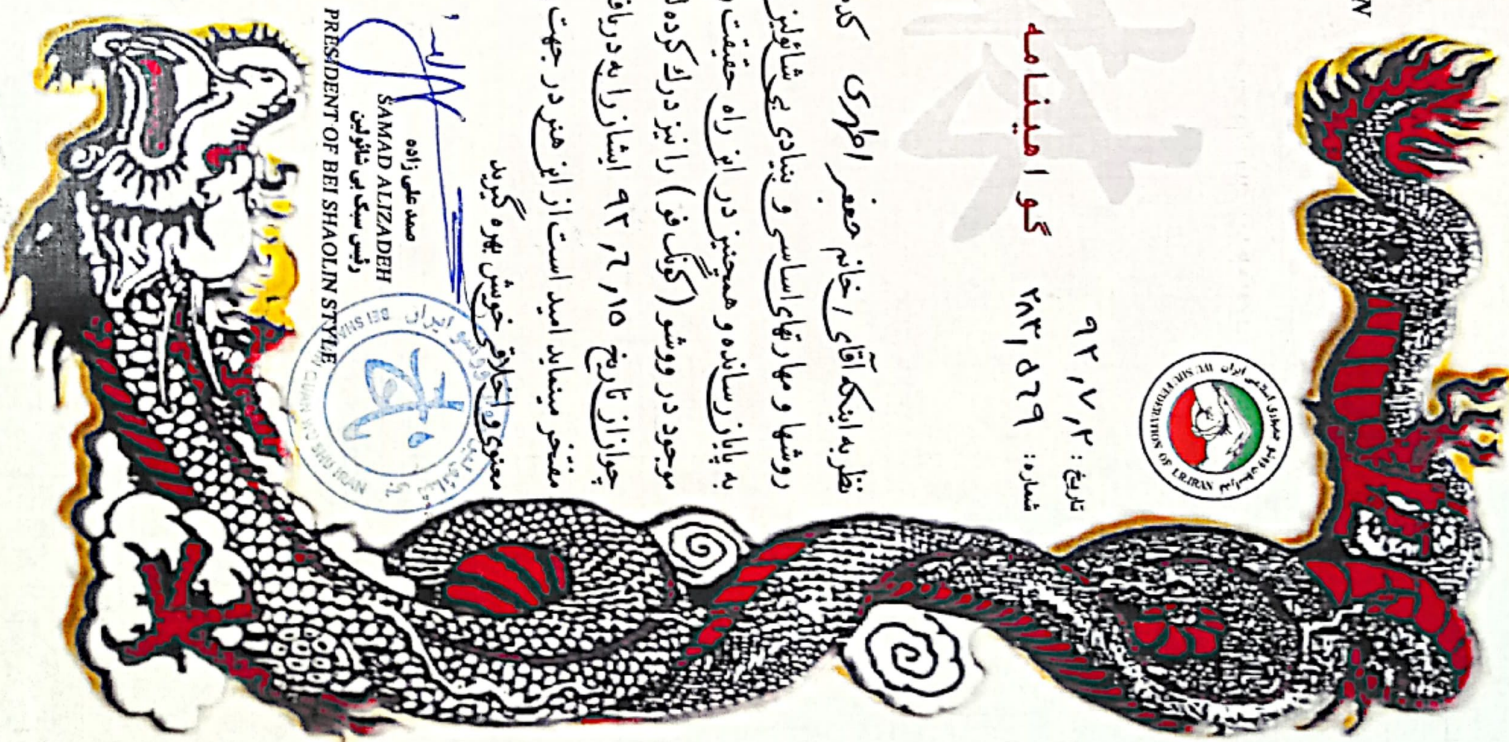 گواهینامه
تاریخ: ۹۲٫۷٫۲
شماره: ۲۸۳٫۵۶۹
WUSHU FEDERATION OF I.R.IRAN
نظر به اینکه آقای / خانم جعفر اطهری
روشها و مهارتهای اساسی و بنیادی بی شائولین
به پایان رسانده و همچنین در این راه حقیقت
موجود در ووشو (کونگ فو) را نیز درک کرده
جواز از تاریخ ۹۲٫۶٫۱۵ ایشان را به
مفتخر مینماید امید است از این هنر در جهت
معنوی و اخلاقی خویش بهره گیرید
صمد علی زاده
SAMAD ALIZADEH
رئیس سبک بی شائولین
PRESIDENT OF BEI SHAOLIN STYLE